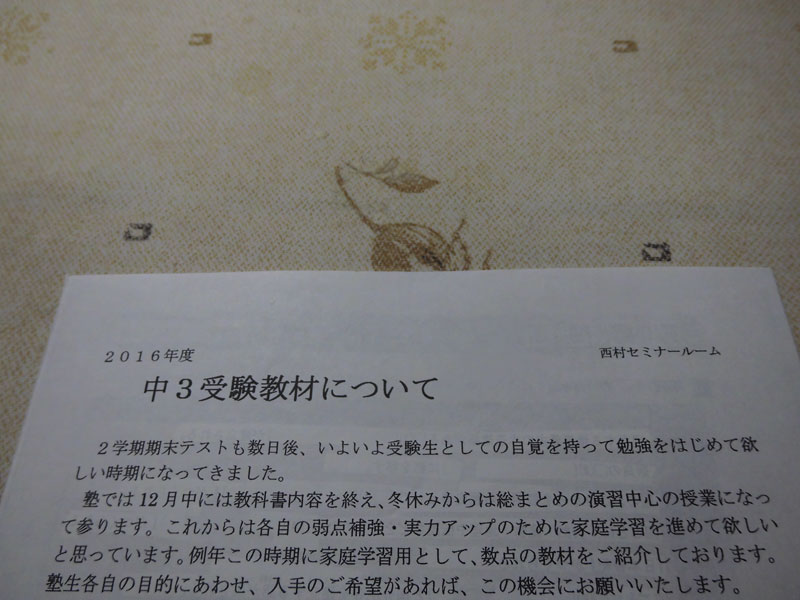 ２０１６年度
西村セミナールーム
中３受験教材について
２学期期末テストも数日後、いよいよ受験生としての自覚を持って勉強をはじめて欲
しい時期になってきました。
塾では 12 月中には教科書内容を終え、冬休みからは総まとめの演習中心の授業になっ
て参ります。これからは各自の弱点補強・実力アップのために家庭学習を進めて欲しい
と思っています。例年この時期に家庭学習用として、数点の教材をご紹介しております。
塾生各自の目的にあわせ、入手のご希望があれば、この機会にお願いいたします。